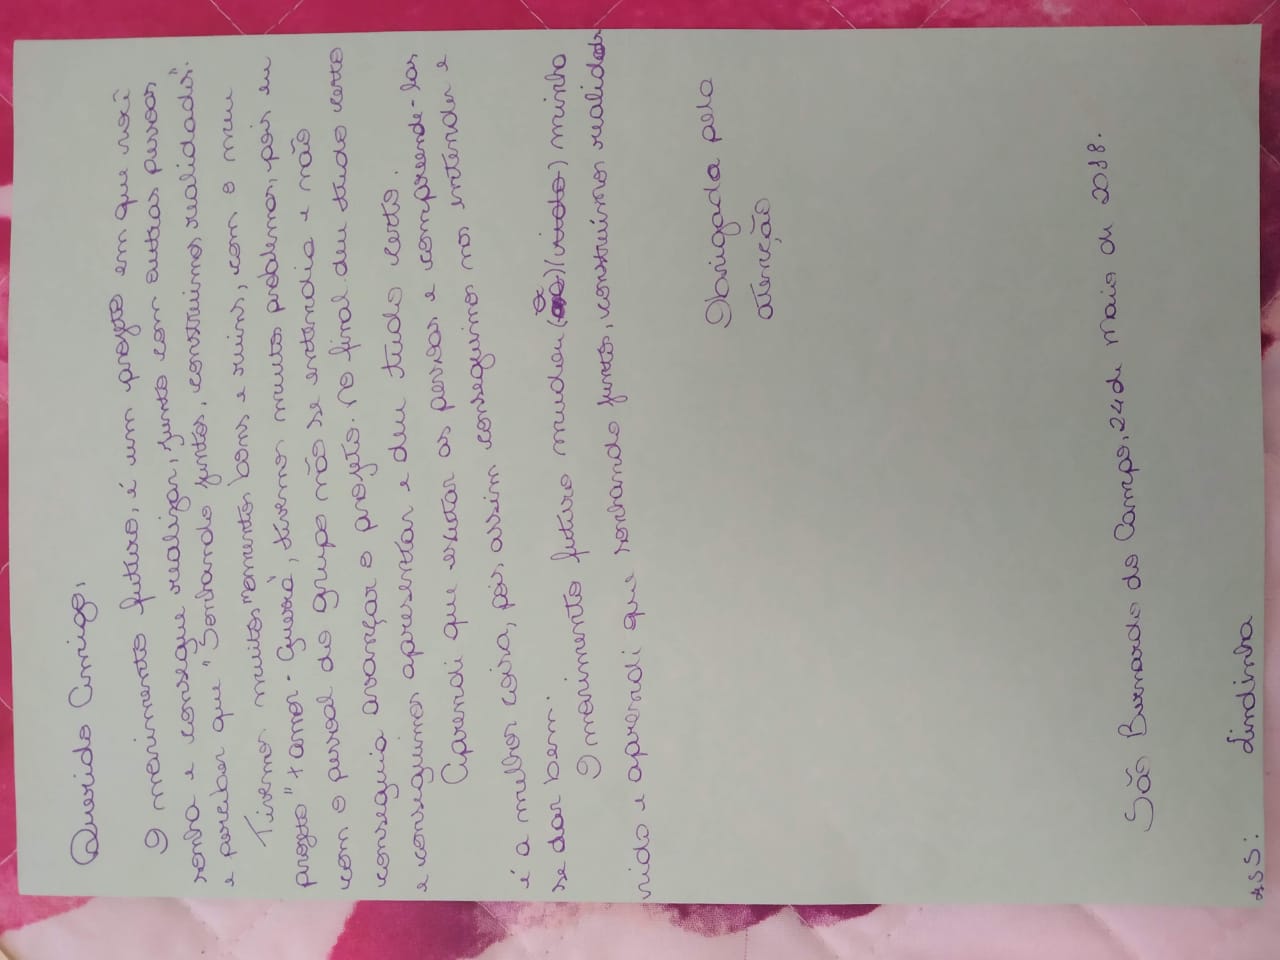 Querido Amigo,
O movimento futuro, é um projeto em que você
sonha e consegue realizar, junto com outras pessoas
e perceber que "Sonhando juntos, construimos realidades".
Tivemos muitos momentos bons e ruins, com o meu
projeto "+ amor - Guerra", tivemos muitos problemas, pois eu
com o pessoal do grupo não se entendia e não
conseguia avançar o projeto. No final deu tudo certo
e conseguimos apresentar e deu tudo certo.
Aprendi que escutar as pessoas e compreende-las
é a melhor coisa, pois assim conseguimos nos entender e
se dar bem.
O movimento futuro mudou a minha
vida e aprendi que sonhando juntos, construimos realidades
Obrigada pela
atenção
São Bernardo do Campo, 24 de maio de 2018.
Ass: Lindinha